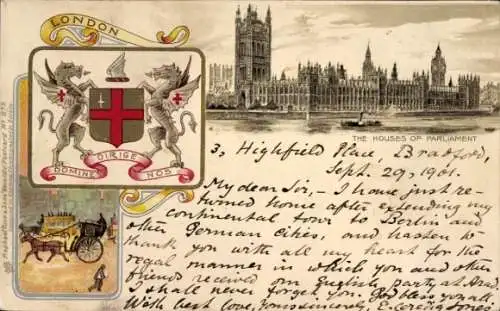 LONDON
DOMINE DIRIGE NOS
THE HOUSES OF PARLIAMENT
3, Highfield Place, Bradford,
Sept. 29, 1901.
My dear Sir,— I have just re-
turned home after extending my
continental tour to Berlin and
other German cities, and hasten to
thank you with all my heart for the
regal manner in which you and other
friends received our English party at Arad.
I shall never forget you. God bless you all.
With best love, Yours sincerely, E. Ceredig Jones